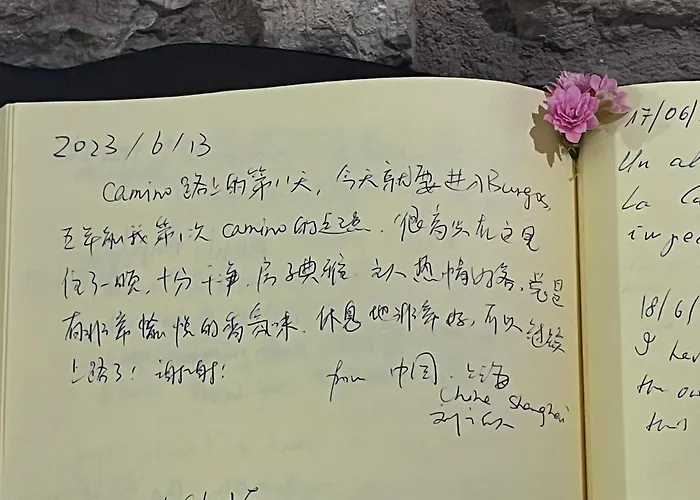 2023/6/13
Camino 路上的第11天,今天就要进入Burgos,
五年前我第1次 camino的起点.很高兴在这里
住了一晚,十分干净.房子典雅 主人热情好客,
有非常愉悦的香氛味.休息地非常好,可以继续
上路了!谢谢!
from 中国.上海
Chine Shanghai
17/06/
Un al
La Ca
18/6/
I hav
the ow
this